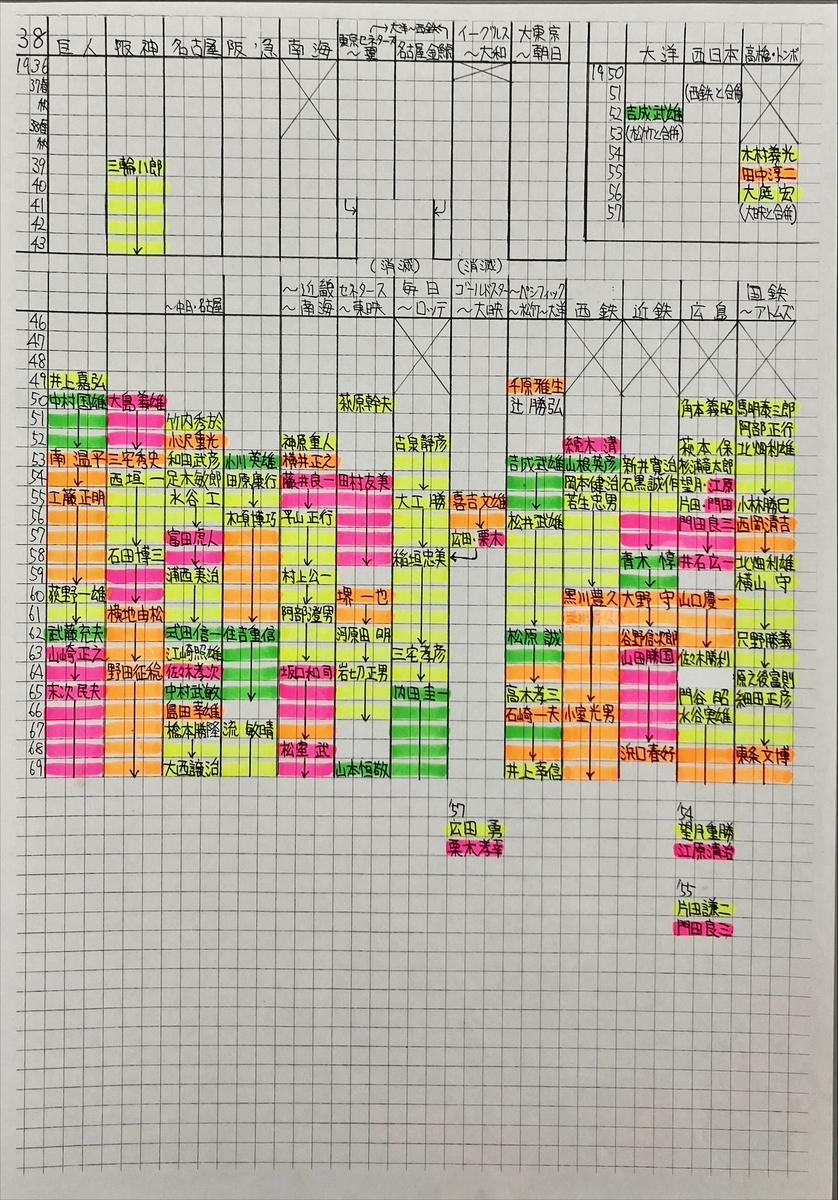 38 巨人 阪神 名古屋 阪急 南海 東京セネタース〜翼 名古屋金鯱 イーグルス〜大和 大東京〜朝日 大洋 西日本 高橋・トンボ
大洋〜西鉄
1936 1950
37春 51 (西鉄と合併)
秋 52 吉成武雄
38春 53 (松竹と合併)
秋 54 木村義光
39 三輪八郎 55 田中淳二
40 56 大庭宏
41 57 (大映と合併)
42
43
(消滅) (消滅)
〜中日・名古屋 〜近畿〜南海 セネタース〜東映 毎日〜ロッテ ゴールドスター〜大映 〜パシフィック〜松竹〜大洋 西鉄 近鉄 広島 国鉄〜アトムズ
46
47
48
49 井上嘉弘 千原雅生
50 中村国雄 大島義雄 萩原幹夫 辻勝弘 角本義昭 馬明泰三郎
51 竹内秀於 阿部正行
52 小沢重光 神原重人 古泉静彦 続木清 萩本保 北畑利雄
53 南温平 三宅秀史 和田武彦 小川英雄 横井正之 吉成武雄 山根英彦 新井實治 杉浦竜太郎
54 西垣一 足木敏郎 田原康行 藤井良一 田村友美 岡本健治 石黒誠作 望月・江原
55 工藤正明 水谷工 大工勝 喜吉文雄 若生忠男 片田・門田 小林勝巳
56 木項博巧 平山正行 松井武雄 門田良三 西岡清吉
57 富田虎人 広田・栗木
58 石田博三 稲垣忠美 青木惇 井石広一 北畑利雄
59 蒲西美治 村上公一 横山守
60 荻野一雄 堺一也 黒川豊久 大野守 山口慶一
61 横地由松 阿部澄男
62 武藤充夫 式田信一 住吉重信 河原田明 松原誠 谷野信次郎 只野勝義
63 山崎正之 江崎照雄 三宅孝彦 山田勝国 佐々木勝利
64 野田征稔 佐々木孝次 坂口和司 岩切正男 原之後富則
65 末次民夫 中村武敏 内田圭一 高木孝三 門谷昭 細田正彦
66 島田幸雄 石崎一夫 小室光男 水谷実雄
67 橋本勝隆 流敏晴
68 松室武 浜口春好 東条文博
69 大西譲治 山本恒敬 井上幸信
'57 '54
広田勇 望月重勝
栗木孝幸 江原清治
'55
片田謙二
門田良三